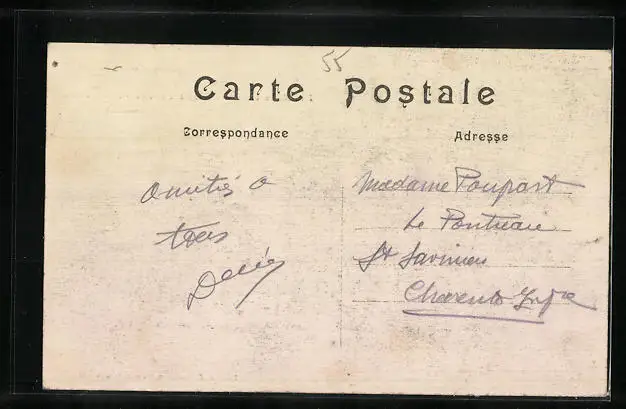 55
Carte Postale
Correspondance
Adresse
Amitiés à
tous
Madame Poupart
Le Pontreau
St Savinien
Charente Infre